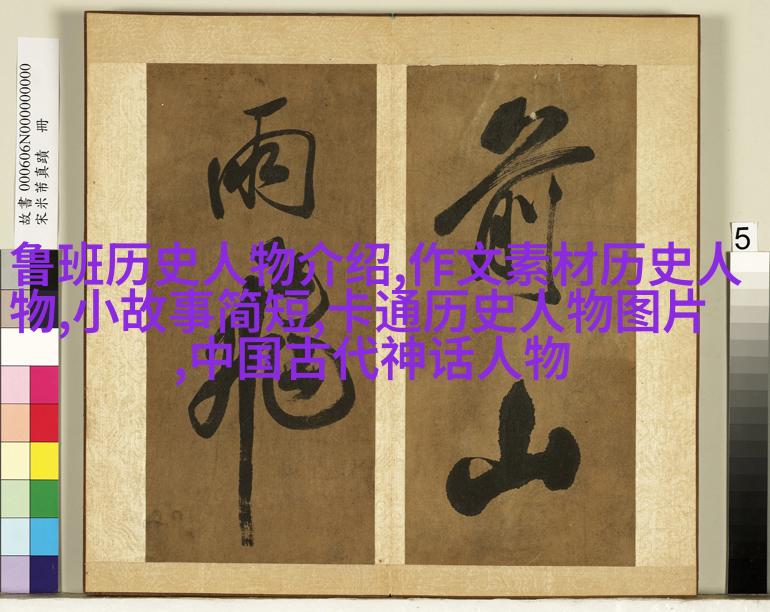 鲁班历史人物介绍,作文素材历史人
物,小故事简短,卡通历史人物图片
,中国古代神话人物
前山
雨飛
故書 000606N000000000
宋米芾真蹟 冊
5